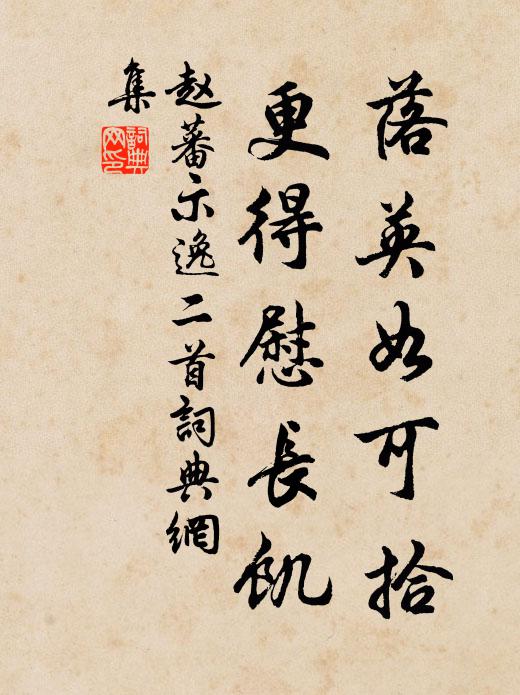 落英如可拾
更得慰長飢
赵蕃示逸二首詞典網
集
詞典網印